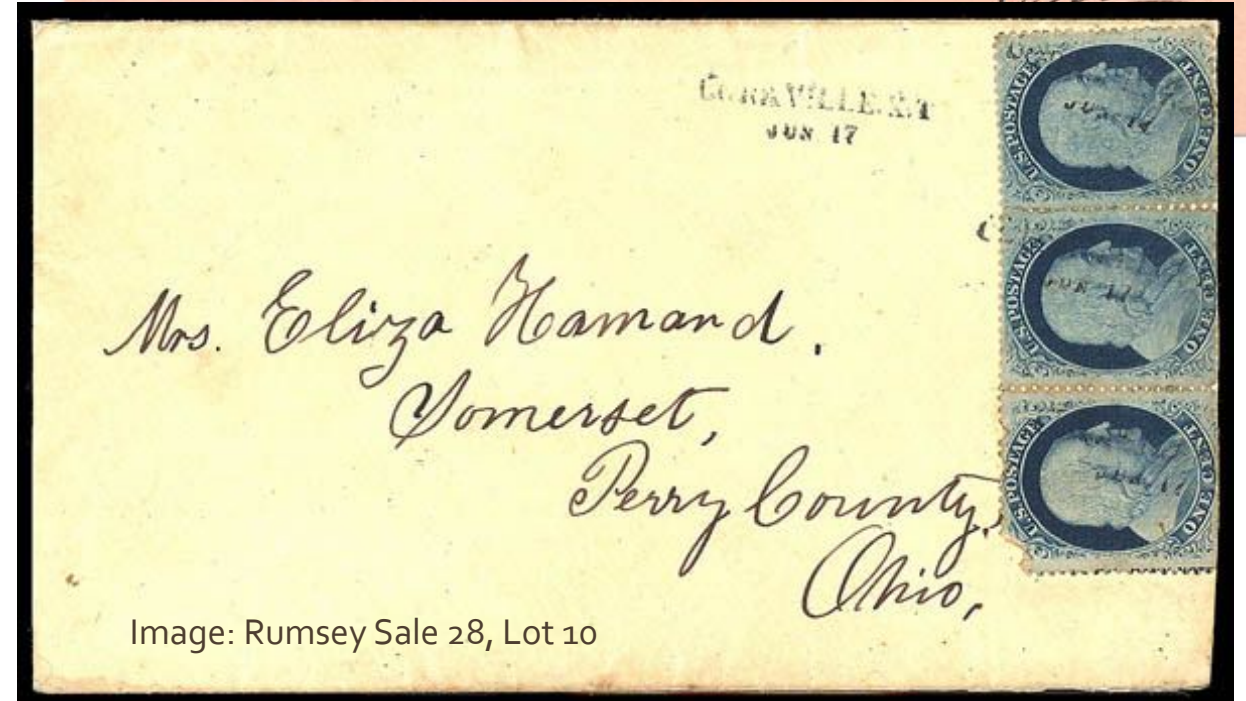 JUN 17
U.S. POSTAGE
ONE CENT
U.S. POSTAGE
ONE CENT
U.S. POSTAGE
ONE CENT
Mrs. Eliza Hamand.
Somerset,
Perry County,
Ohio,
Image: Rumsey Sale 28, Lot 10